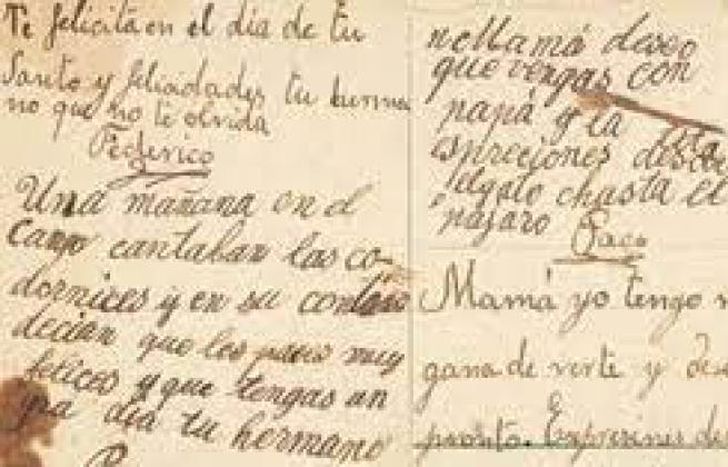 Te felicita en el dia de tu
Santo y felicidades tu herma
no que no te olvida
Federico
Una mañana en el
campo cantaban las co-
dornices y en su
decian que los pases muy
felices y que tengas un
dia tu hermano
Mamá deseo
que vengas con
papá y la
espreciones desde
chasta el
pájaro Paco
Mamá yo tengo
gana de verte y
pronto. Expresiones de